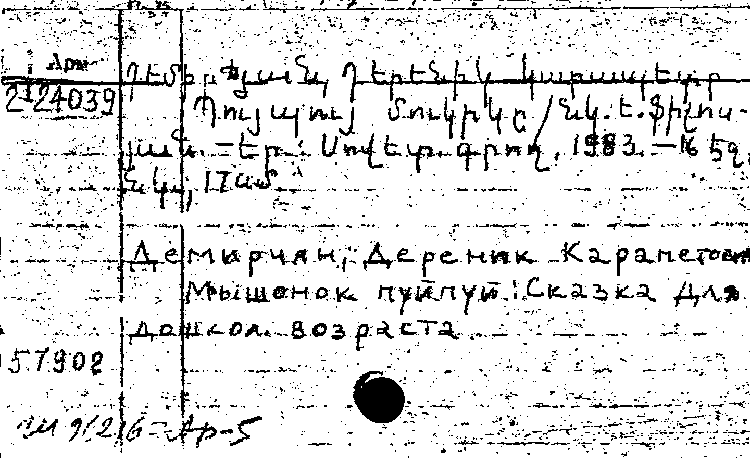 Арм
2124039
Դեմիրճյան, Դերենիկ Կարապետի
Պույպույ մուկիկը / նկ. Ե. Փիլոս-
յան. – Եր.: Սովետ. գրող, 1983. – 16 էջ,
նկ.; 17սմ
Демирчян, Дереник Карапетович
Мышонок пуйпуй: Сказка для
дошкол. возраста
57902
Ар-5